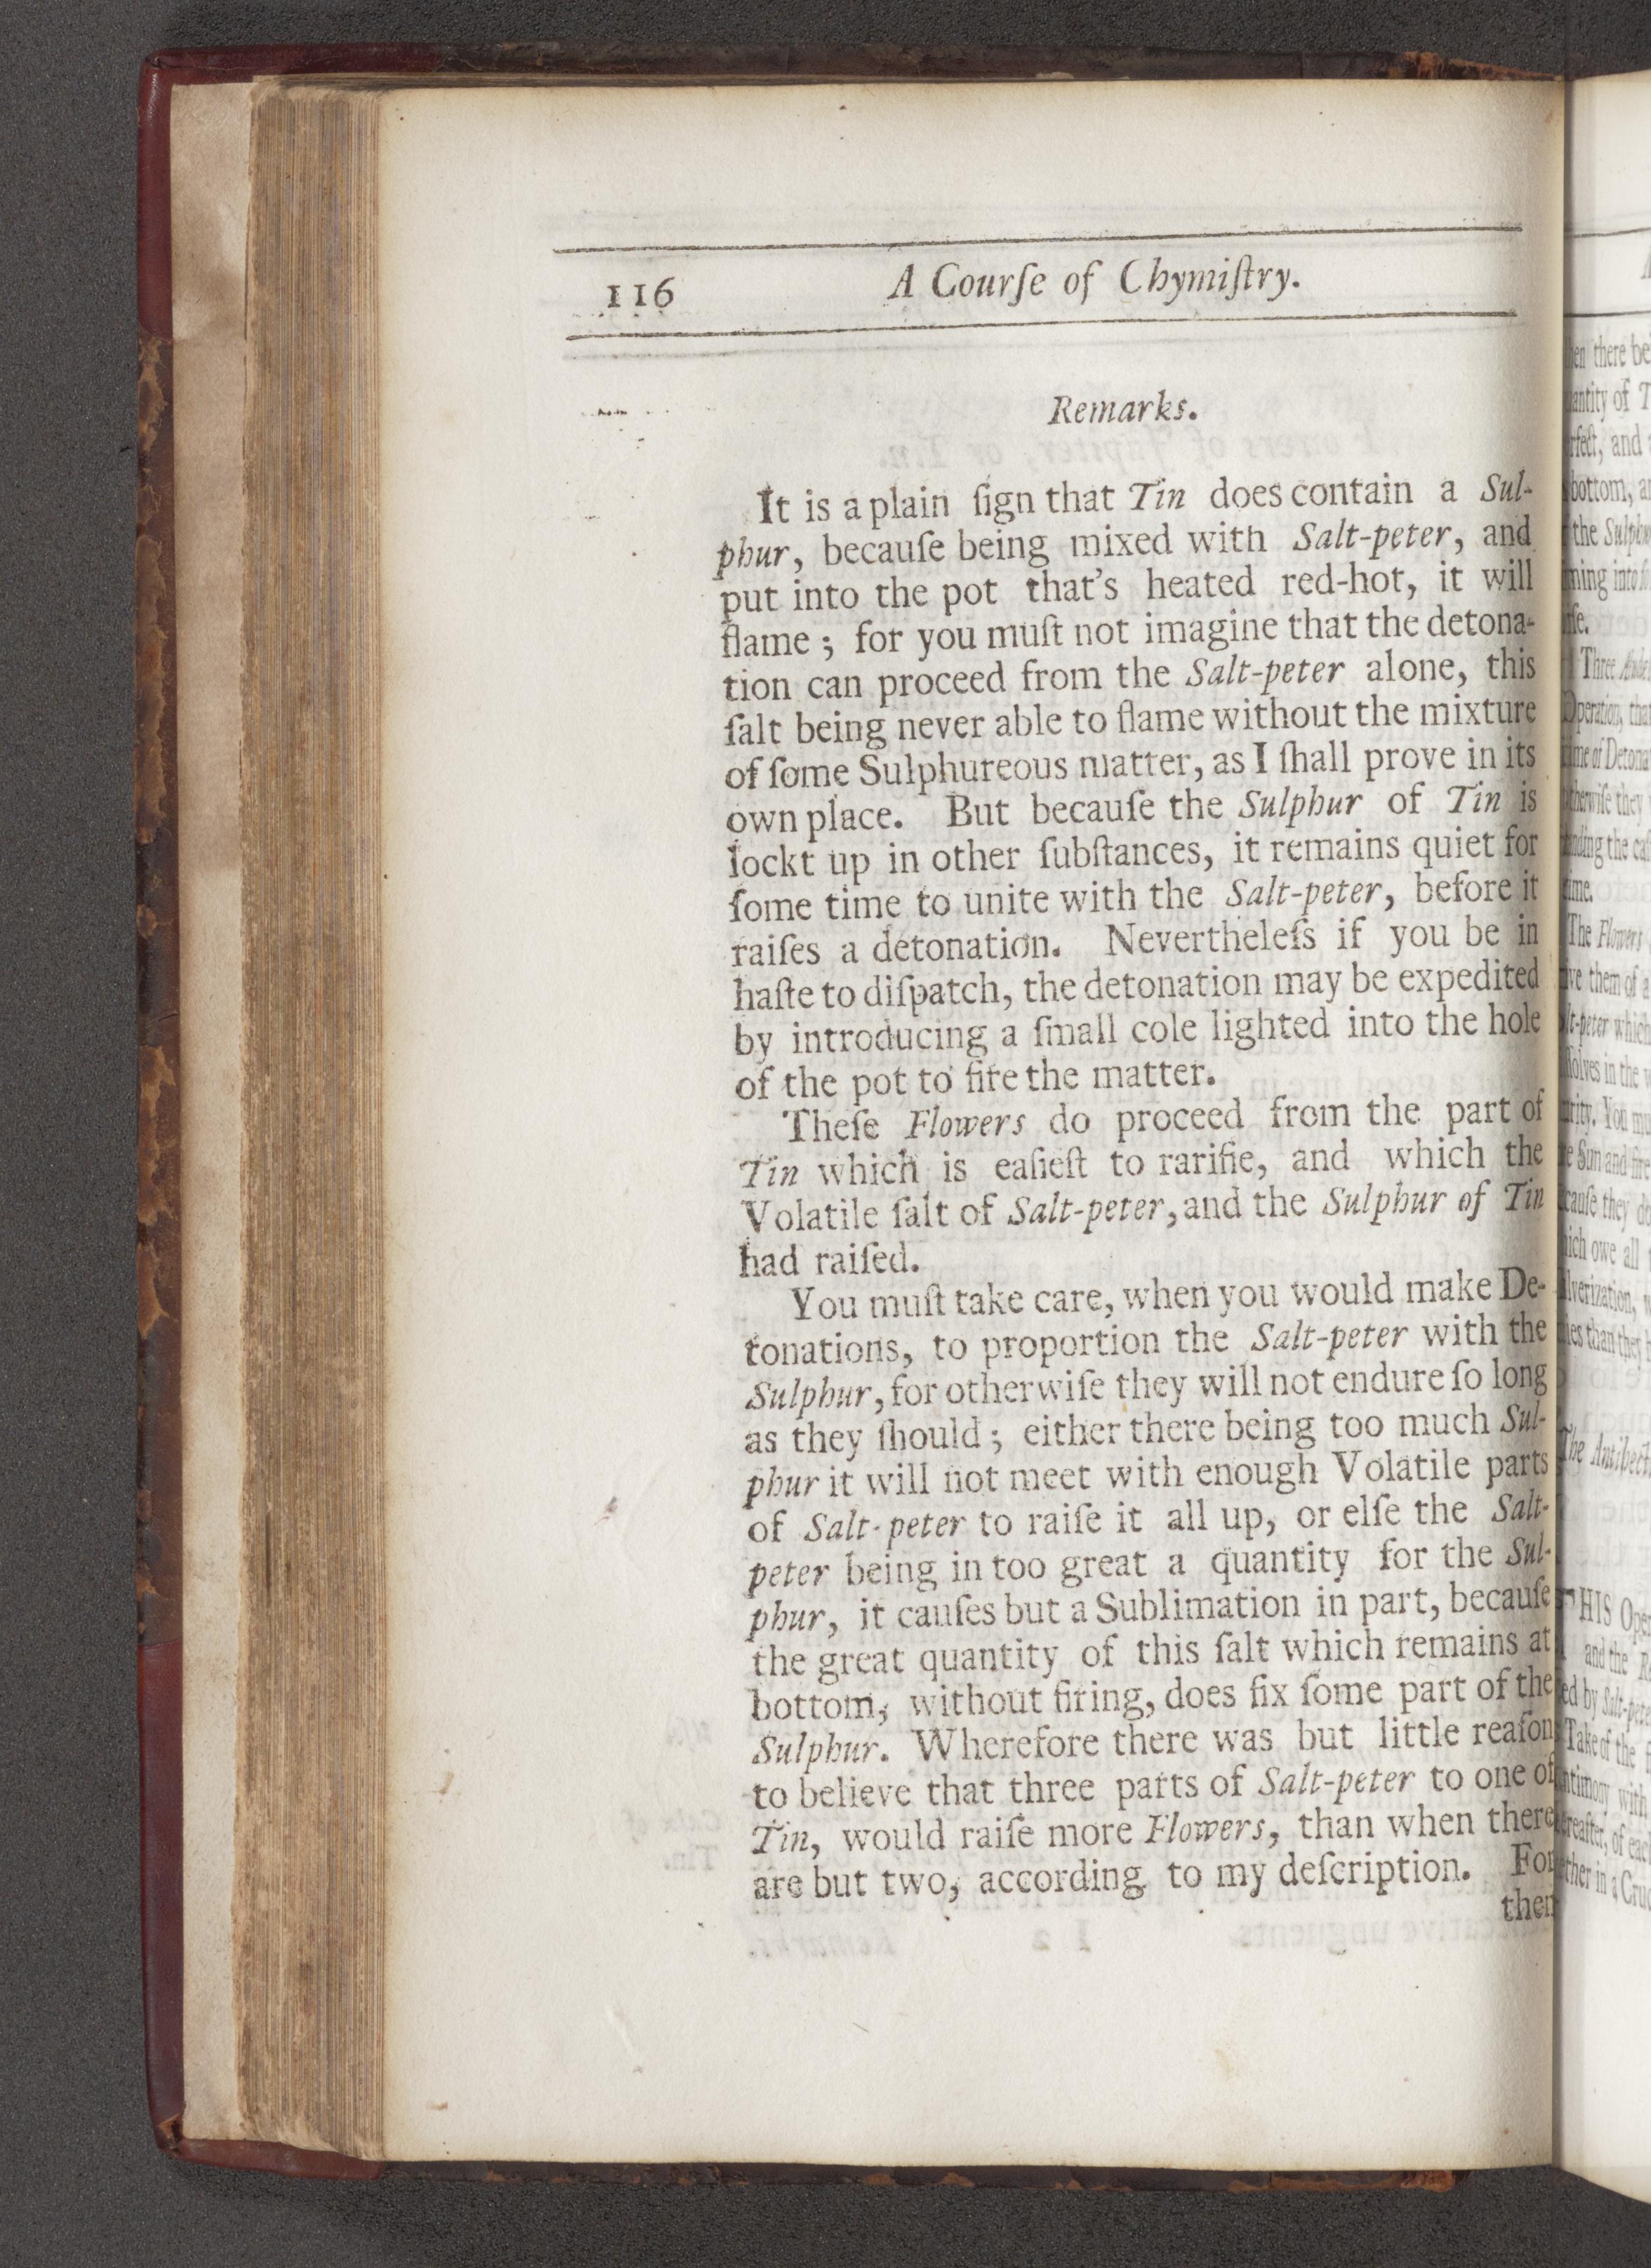 116 A Courſe of Chymiſtry.
Remarks.
It is a plain ſign that Tin does contain a Sul-
phur, becauſe being mixed with Salt-peter, and
put into the pot that's heated red-hot, it will
flame ; for you muſt not imagine that the detona-
tion can proceed from the Salt-peter alone, this
ſalt being never able to flame without the mixture
of ſome Sulphureous matter, as I ſhall prove in its
own place. But becauſe the Sulphur of Tin is
lockt up in other ſubſtances, it remains quiet for
ſome time to unite with the Salt-peter, before it
raiſes a detonation. Nevertheleſs if you be in
haſte to diſpatch, the detonation may be expedited
by introducing a ſmall cole lighted into the hole
of the pot to fire the matter.
Theſe Flowers do proceed from the part of
Tin which is eaſieſt to rarifie, and which the
Volatile ſalt of Salt-peter, and the Sulphur of Tin
had raiſed.
You muſt take care, when you would make De-
tonations, to proportion the Salt-peter with the
Sulphur, for otherwiſe they will not endure ſo long
as they ſhould ; either there being too much Sul-
phur it will not meet with enough Volatile parts
of Salt-peter to raiſe it all up, or elſe the Salt-
peter being in too great a quantity for the Sul-
phur, it cauſes but a Sublimation in part, becauſe
the great quantity of this ſalt which remains at
bottom, without firing, does fix ſome part of the
Sulphur. Wherefore there was but little reaſon
to believe that three parts of Salt-peter to one of
Tin, would raiſe more Flowers, than when there
are but two, according to my deſcription. For
then
there be
of
and
bottom,
the
into
Three
of
they
the
The Flowers
them of a
which
in the
You
Sun and
they
owe all
than they
The
HIS
and the
by
Take of the
with
of
in a